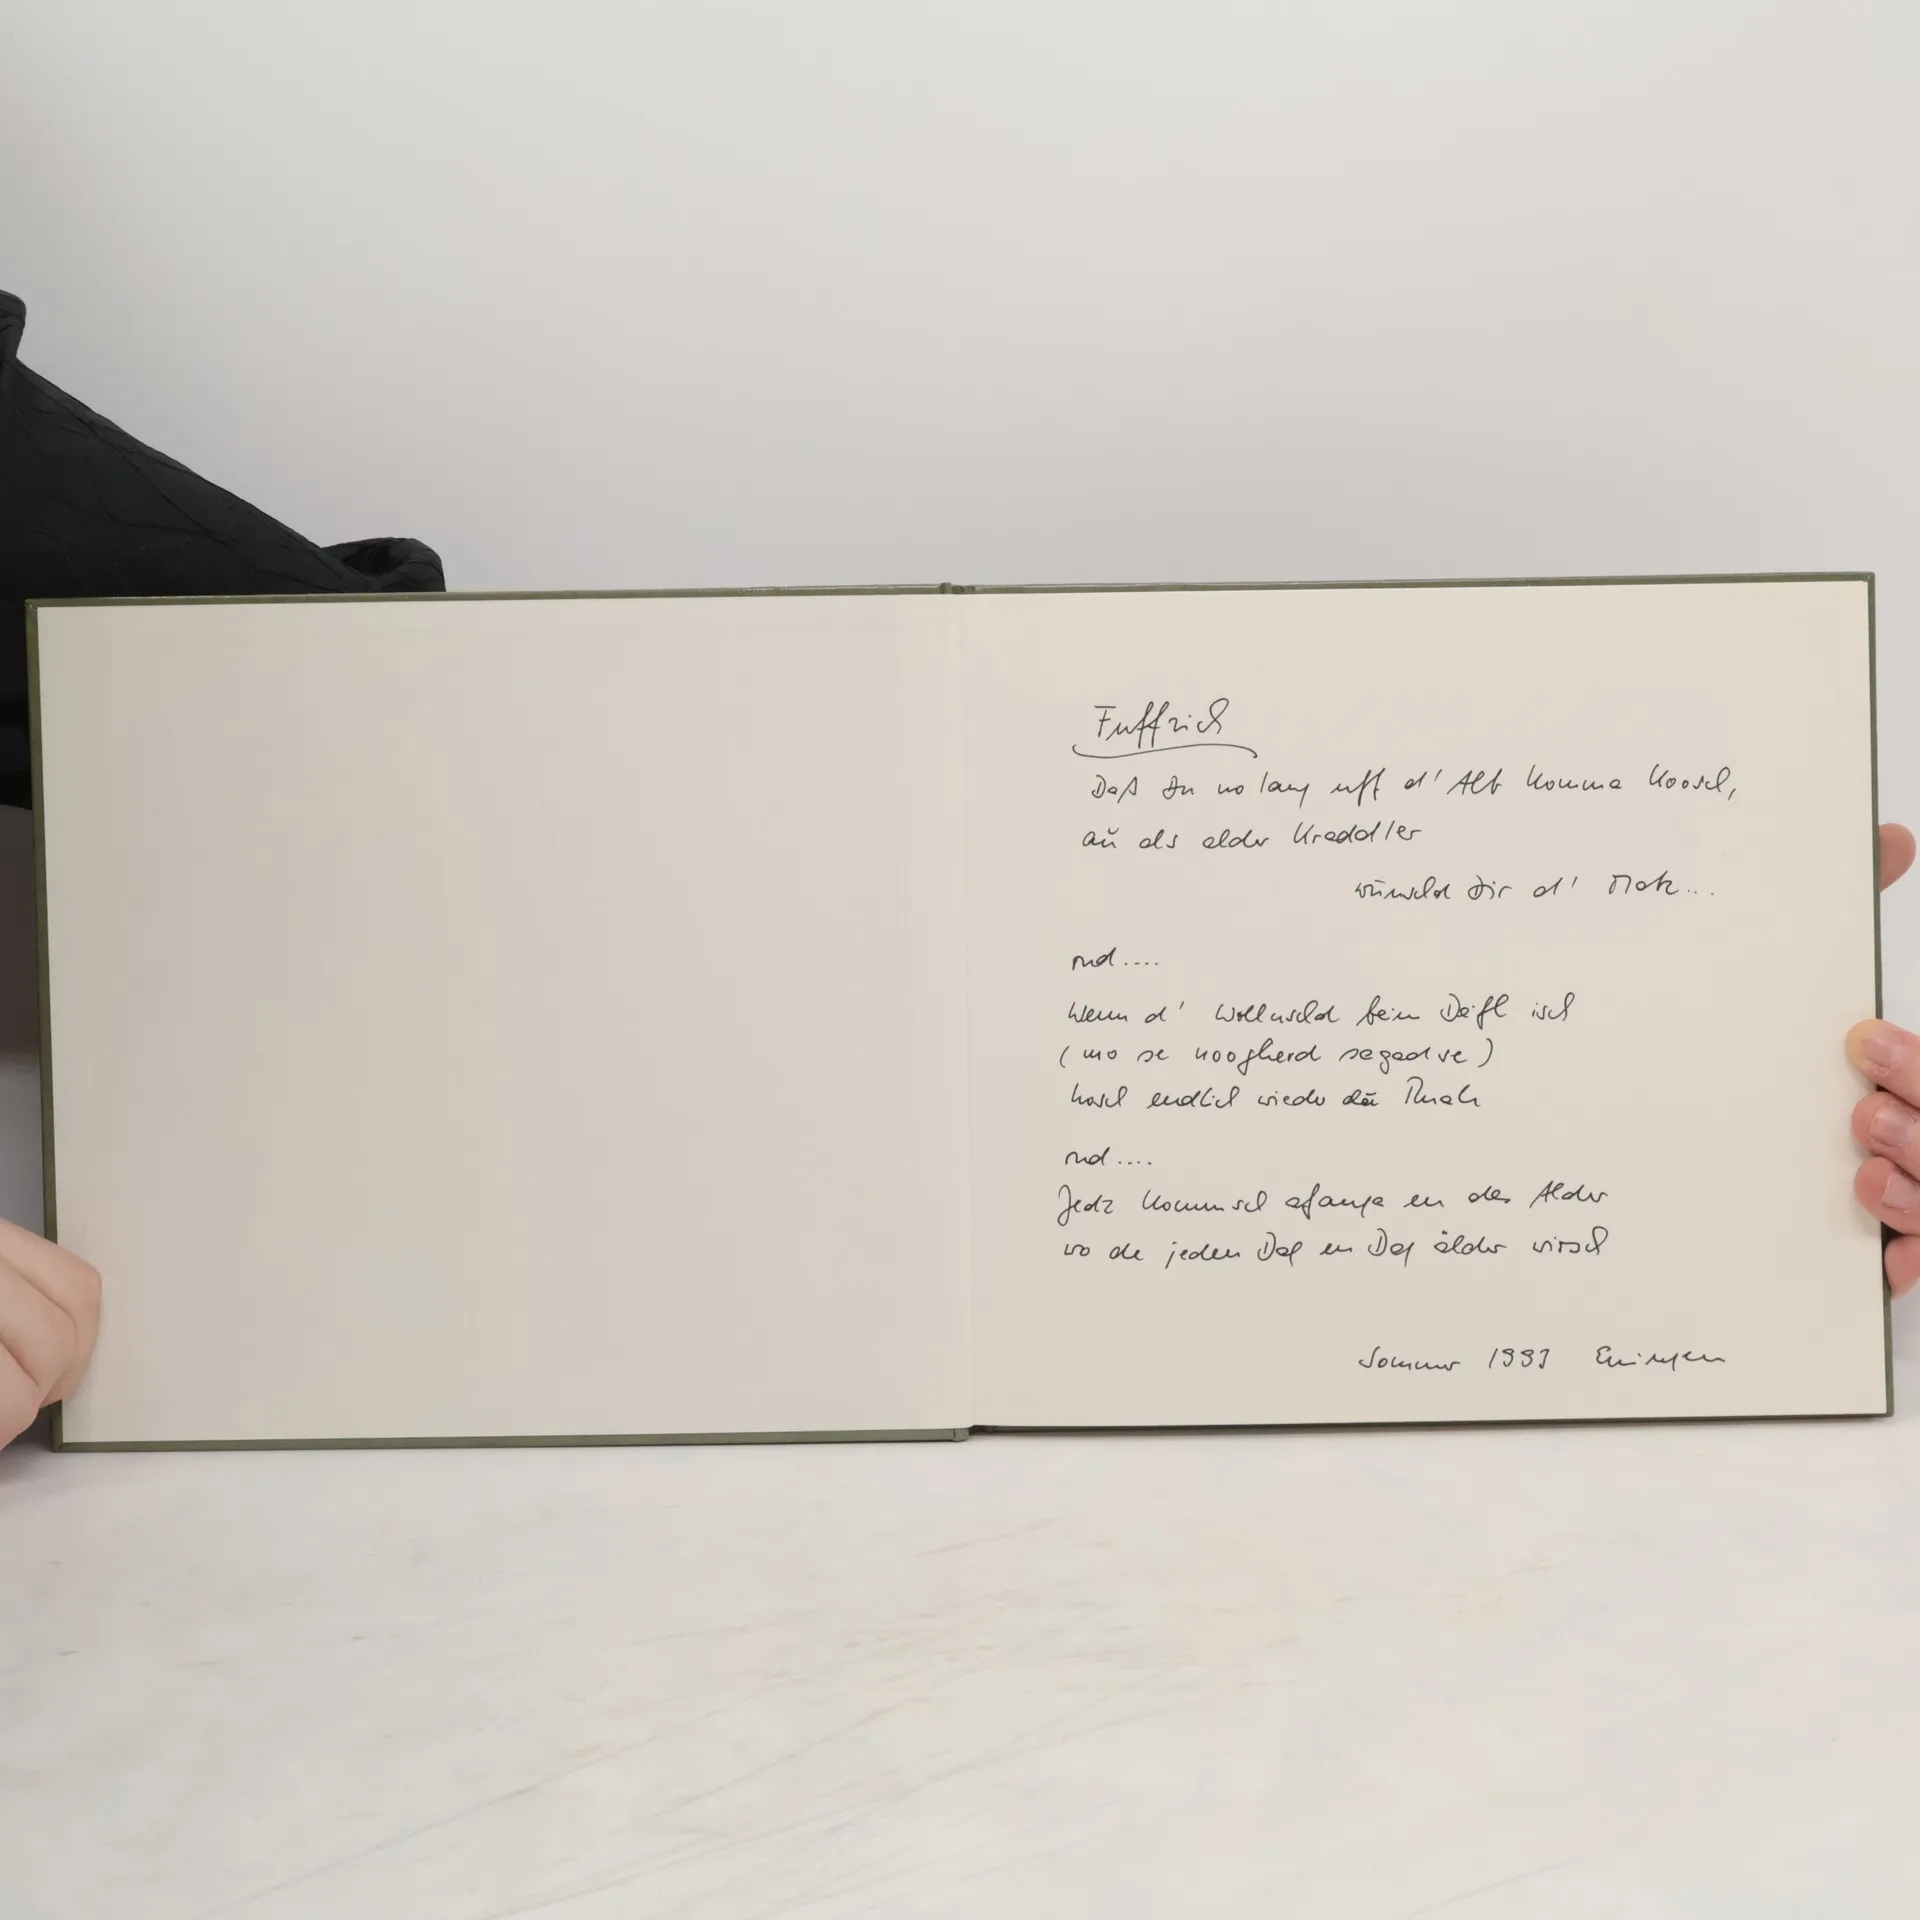 Fuffzich
Daß Du no lang uff d' Alb komma koosch,
au als alder Kraddler
wünschd Dir d' Mek...
ond....
Wenn d' Wollnschd beim Deifl isch
(mo se noogherd segad se)
hosch endlich wieder dei Ruah
ond....
Jedz kommsch afanga en des Alder
wo de jeden Dag en Dag älder wirsch
Sommer 1993 Eningen